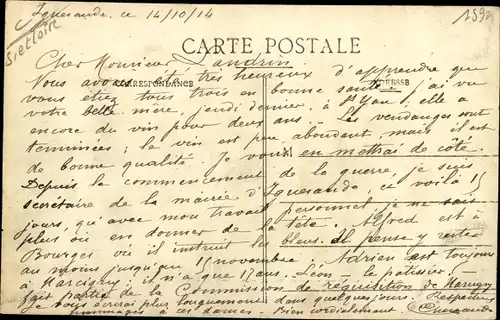 S et Loir
Iguerande, ce 14/10/14
CARTE POSTALE
CORRESPONDANCE
ADRESSE
Cher Monsieur Landrin
Nous avons été très heureux d'apprendre que
vous étiez tous trois en bonne santé. J'ai vu
votre belle mère, jeudi dernier, à St Yan; elle a
encore du vin pour deux ans. Les vendanges sont
terminées; le vin est peu abondant, mais il est
de bonne qualité. Je vous en mettrai de côté.
Depuis le commencement de la guerre, je suis
secrétaire de la mairie d'Iguerande, ce voilà 15
jours, qu'avec mon travail personnel je ne sais
plus où en donner de la tête. Alfred est à
Bourges où il instruit les bleus. Il pense y rester
au moins jusqu'en novembre. Adrien est toujours
à Marcigny; il n'a que 17 ans. Léon le patissier
fait partie de la Commission de réquisition de
Je vous écrirai plus longuement dans quelques jours. Respectueux
hommages à ces dames. Bien cordialement